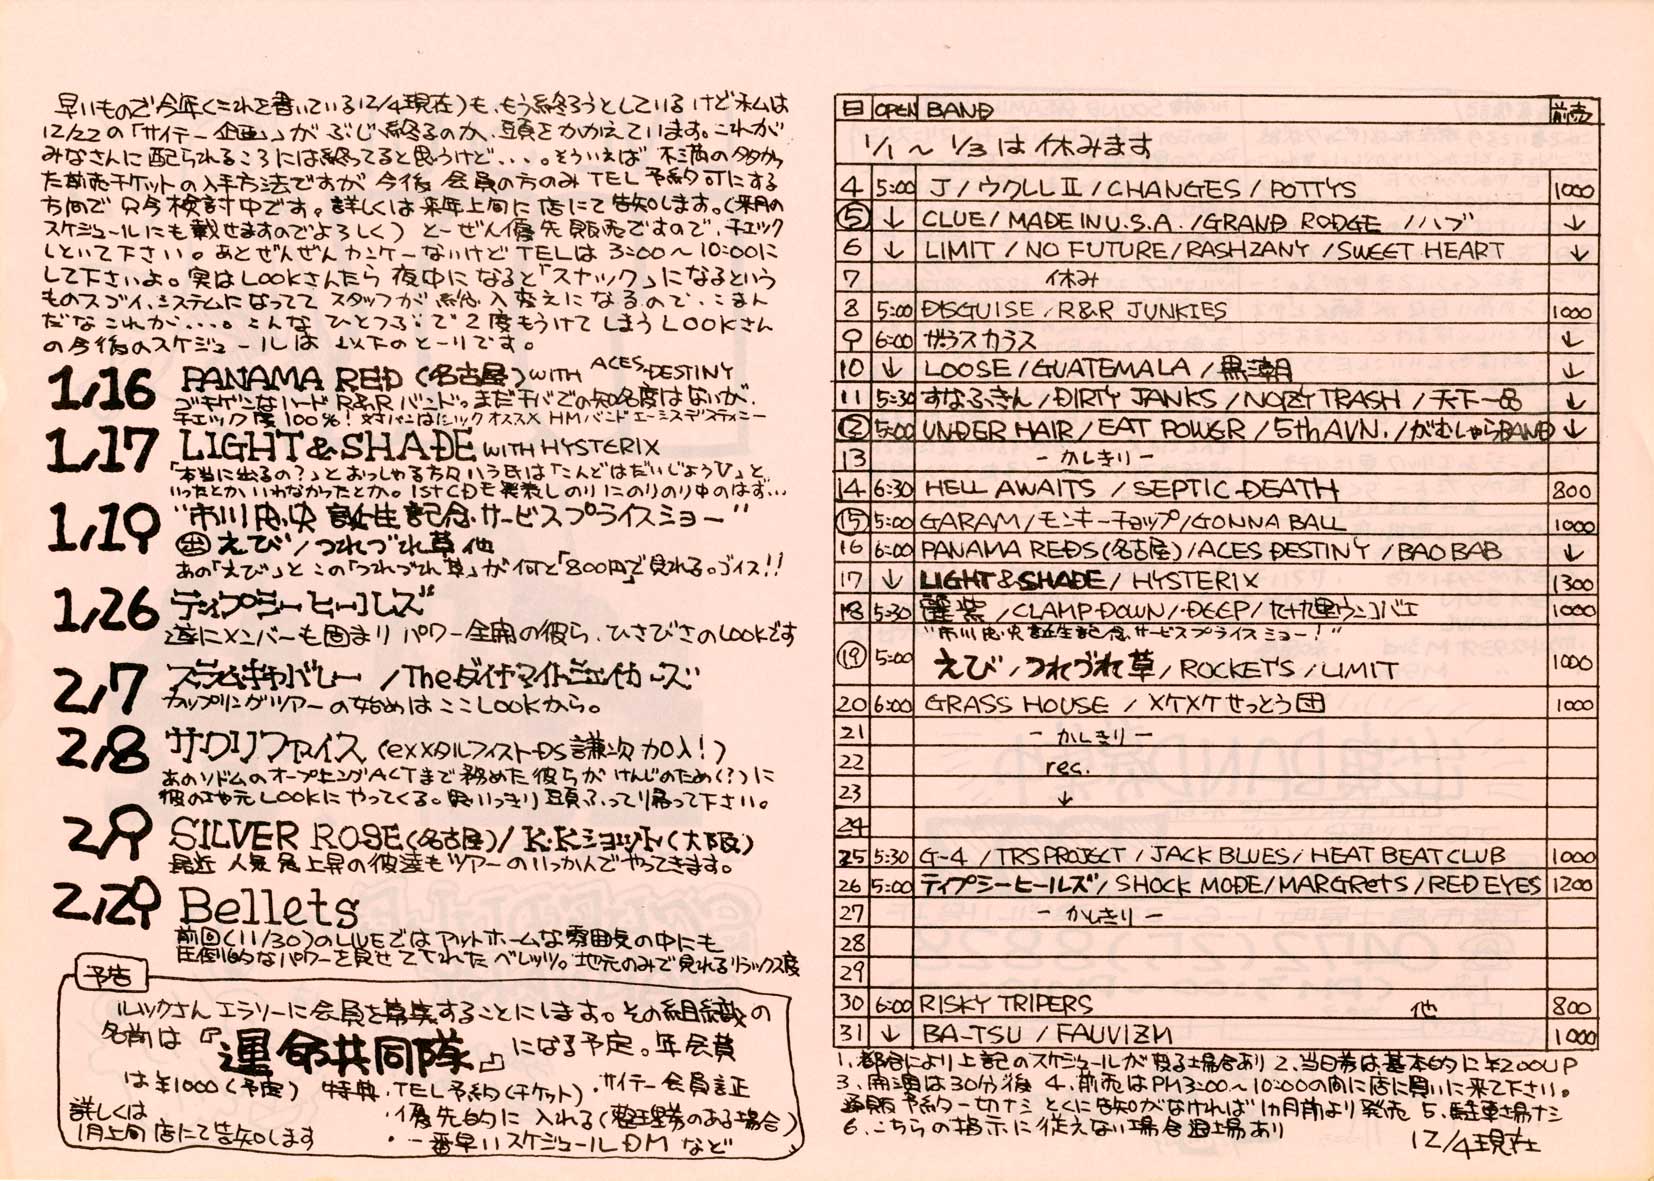 早いもので今年(これを書いている12/4現在)も、もう終ろうとしているけど私は
12/22の「サイテー企画」がぶじ終るのか、頭をかかえています。これが
みなさんに配られるころには終ってると思うけど...。そういえば 不満の多かっ
た前売チケットの入手方法ですが 今後 会員の方のみTEL予約可にする
方向で只今検討中です。詳しくは来年上旬に店にて告知します。(来月の
スケジュールにも載せますのでよろしく) とーぜん優先販売ですので、チェック
しといて下さい。あとぜんぜんカンケーないけどTELは3:00〜10:00に
して下さいよ。実はLOOKさんたら夜中になると「スナック」になるという
ものスゴイ、システムになってて スタッフが総入替えになるので、こまん
だなこれが...。こんなひとつぶで2度もうけてしまうLOOKさん
の今後のスケジュールは以下のとーりです。
1/16 PANAMA RED (名古屋) WITH ACES DESTINY
ゴキゲンなハードR&Rバンド。まだ千バでの知名度はないが、
チェック度100%! 対バンはシックオススメHMバンドエーシスデスティニー
1/17 LIGHT & SHADE WITH HYSTERIX
「本当に出るの?」とおっしゃる方々いう氏は「こんどはだいじょうV」と、
いったとかいわなかったとか。1st CDも発表しのりにのりのり中のはず...
1/19 "市川忠央誕生記念・サービスプライスショー"
出 えび/つれづれ草 他
あの「えび」とこの「つれづれ草」が何と「800円」で見れる。ゴイス!!
1/26 ティプシーヒールズ
遂にメンバーも固まりパワー全開の彼ら、ひさびさのLOOKです
2/7 スラムキャバレー /Theダイナマイトシェイカーズ
カップリングツアーの始めはここLOOKから。
2/8 サクリファイス (exメタルフィストDS謙次加入!)
あのソドムのオープニングACTまで務めた彼らがけんじのため(?)に
彼の地元LOOKにやってくる。思いっきり頭ふって帰って下さい。
2/9 SILVER ROSE(名古屋)/K.Kショット(大阪)
最近人気急上昇の彼達もツアーのいっかんでやってきます。
2/29 Bellets
前回(11/30)のLIVEではアットホームな雰囲気の中にも
圧倒的なパワーを見せてくれたベレッツ。地元のみで見れるリラックス度
予告
ルックさんエラソーに会員を募集することにします。その組織の
名前は『運命共同隊』になる予定。年会費
は¥1000(予定) 特典・TEL予約(チケット)・サイテー会員証
・優先的に入れる(整理券のある場合)
詳しくは ・一番早いスケジュールDMなど
1月上旬店にて告知します
日 OPEN BAND 前売
1/1〜1/3は休みます
4 5:00 J/ウクLLⅡ/CHANGES/POTTYS 1000
⑤ ↓ CLUE/MADE IN U.S.A./GRAND RODGE /ハブ ↓
6 ↓ LIMIT/NO FUTURE/RASHZANY/SWEET HEART ↓
7 休み
8 5:00 DISGUISE/R&R JUNKIES 1000
9 6:00 ガラスカラス ↓
10 ↓ LOOSE/GUATEMALA/黒潮 ↓
11 5:30 すなふきん/DIRTY JANKS/NOIZY TRASH/天下一品 ↓
⑫ 5:00 UNDER HAIR/EAT POWER/5th AVN./がむしゃらBAND ↓
13 -かしきり-
14 6:30 HELL AWAITS /SEPTIC DEATH 800
⑮ 5:00 GARAM/モンキーチョップ/GONNA BALL 1000
16 6:00 PANAMA REDS(名古屋)/ACES DESTINY/BAOBAB ↓
17 ↓ LIGHT&SHADE/HYSTERIX 1300
18 5:30 麗紫/CLAMP DOWN/DEEP/九十九里ウンコバエ 1000
"市川忠央誕生記念サービスプライスショー!"
⑲ 5:00 えび/つれづれ草/ROCKETS/LIMIT 1000
20 6:00 GRASS HOUSE/メケメケせっとう団 1000
21 -かしきり-
22 rec.
23 ↓
24
25 5:30 G-4/TRS PROJECT/JACK BLUES/HEAT BEAT CLUB 1000
26 5:00 ティプシーヒールズ/SHOCK MODE/MARGRetS/RED EYES 1200
27 -かしきり-
28
29
30 6:00 RISKY TRIPERS 他 800
31 ↓ BA-TSU/FAUVIZM 1000
1、都合により上記のスケジュールが変る場合あり 2、当日券は基本的に¥200UP
3、開演は30分後 4、前売はPM3:00〜10:00の間に店に買いに来て下さい。
通販予約一切ナシ とくに告知がなければ1カ月前より発売 5、駐車場ナシ
6、こちらの指示に従えない場合退場あり
12/4現在